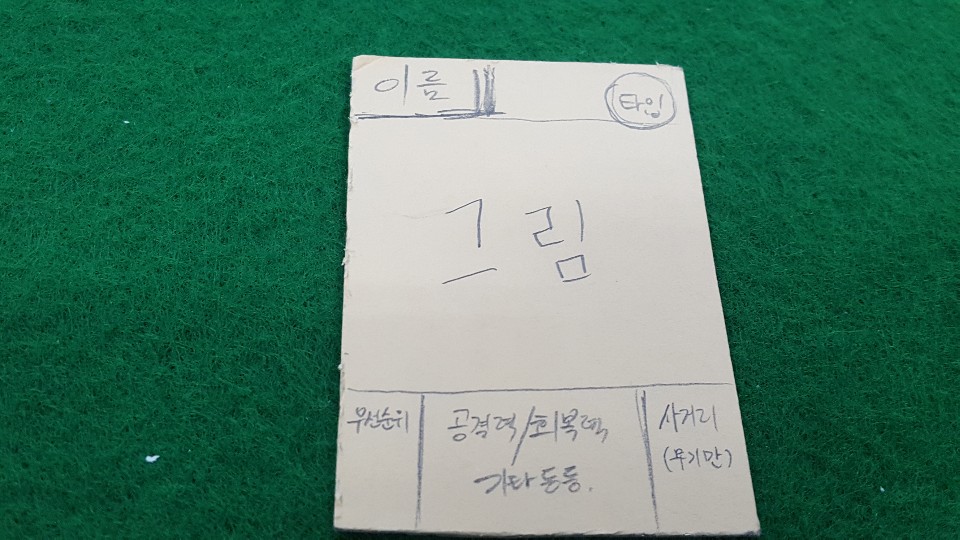 이름
타입
그림
우선순위
공격력/회복력
기타 등등.
사거리
(무기만)